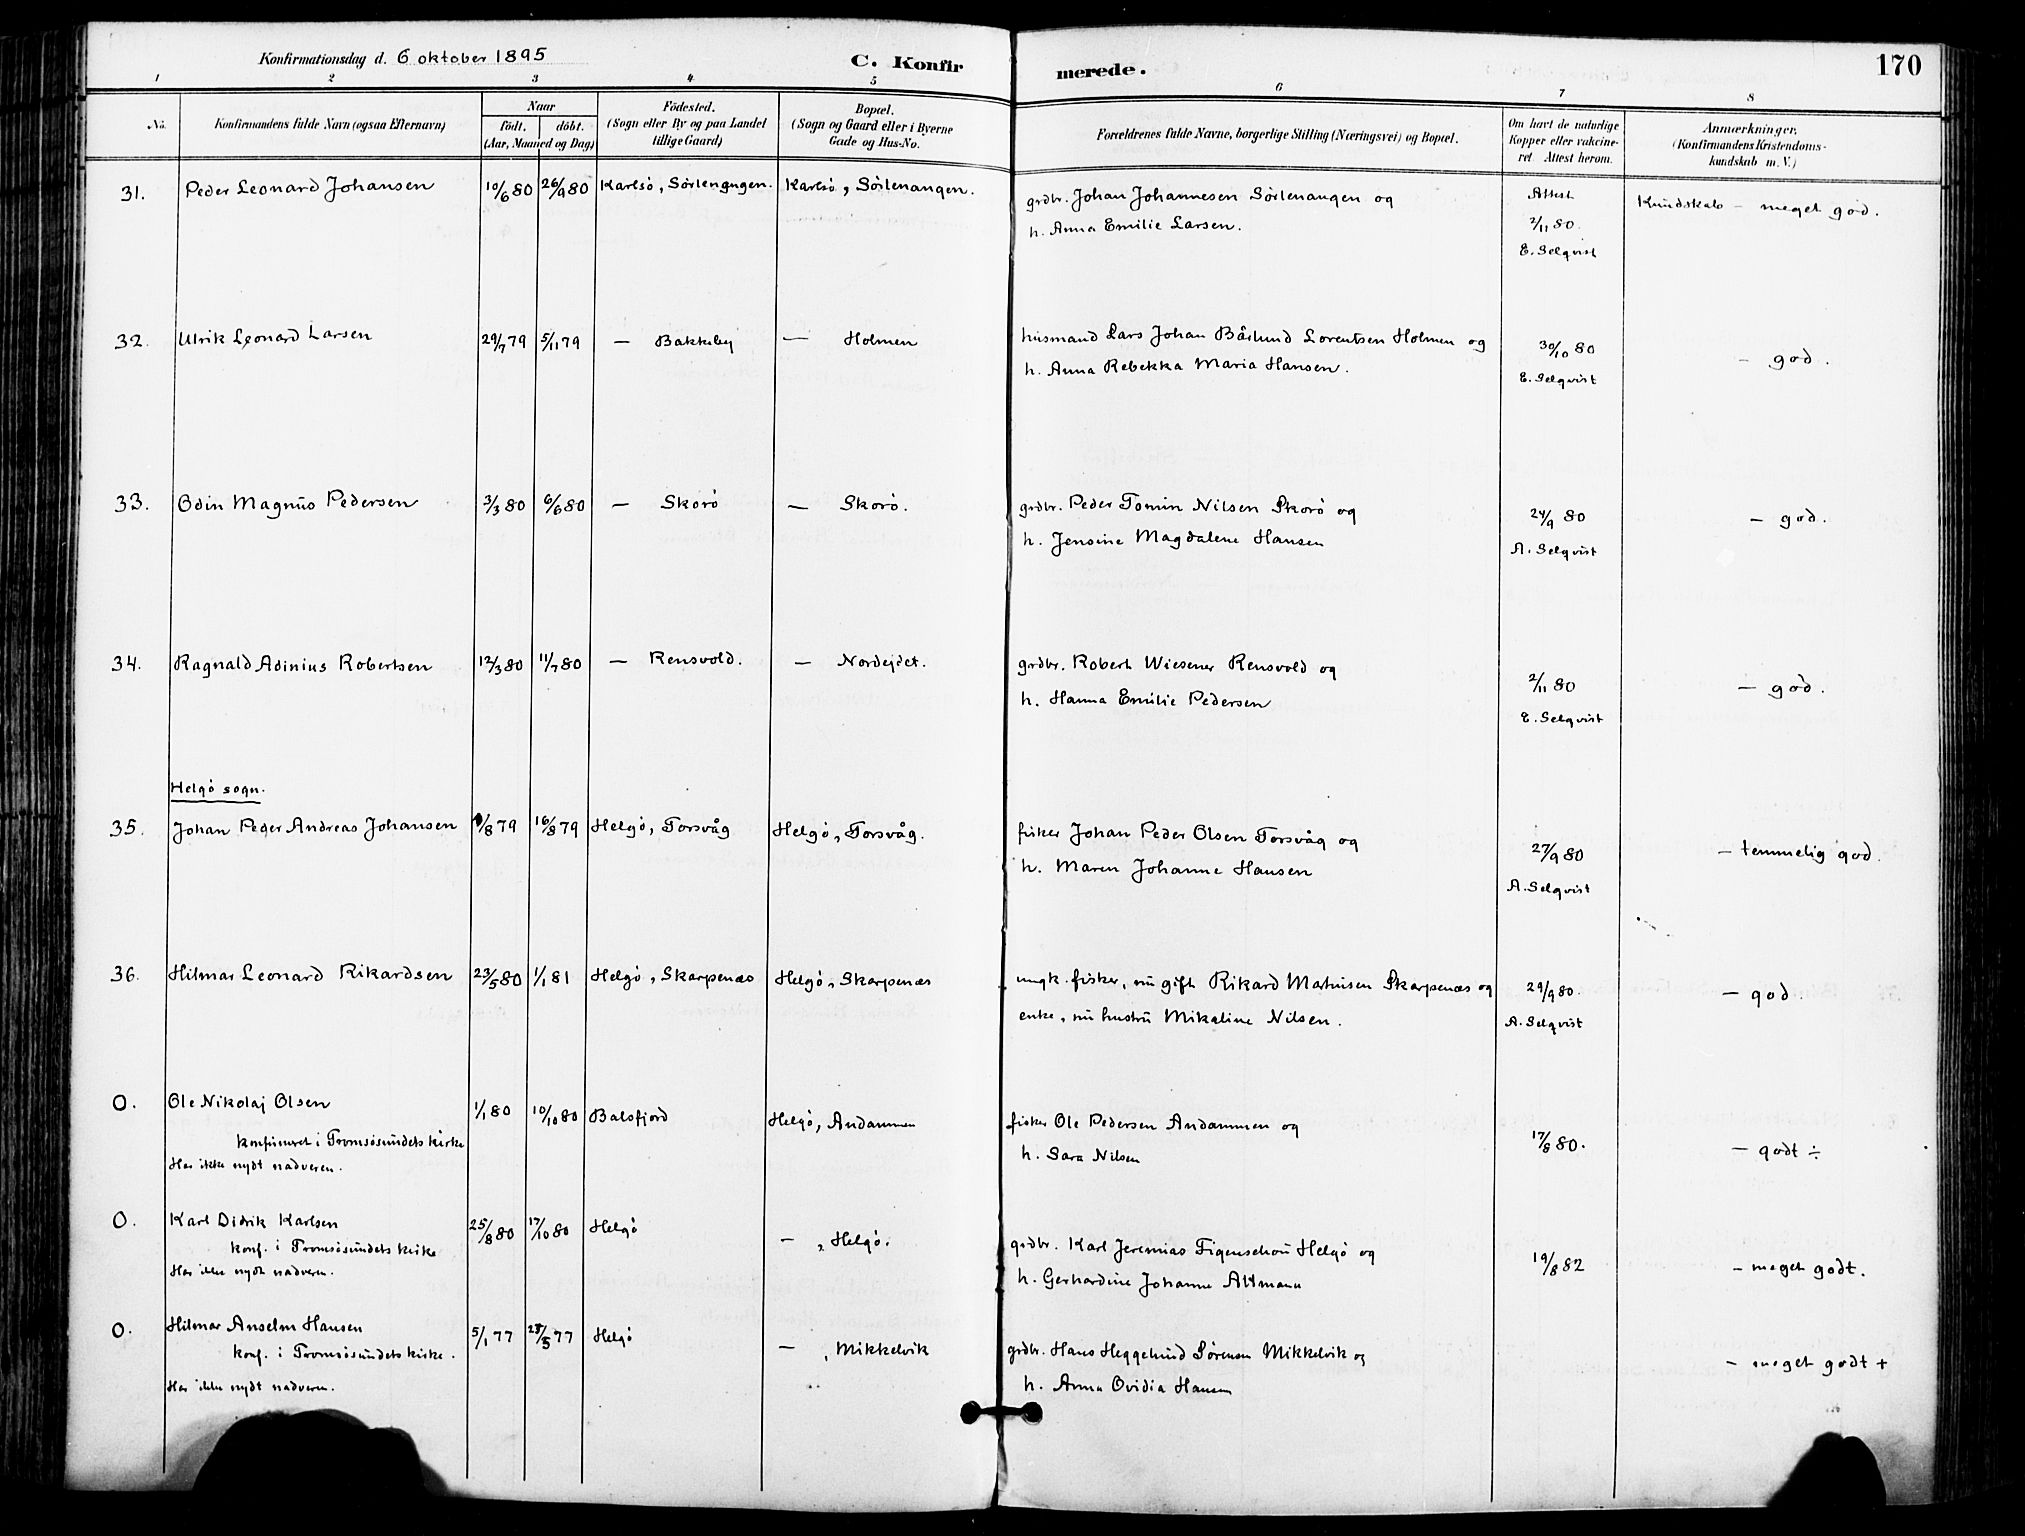 Konfirmationsdag d. 6 oktober 1895
C. Konfirmerede.
170
1 2 3 4 5 6 7 8
No. Konfirmandens fulde Navn (ogsaa Efternavn) Naar født. døbt. (Aar, Maaned og Dag) Födested. (Sogn eller By og paa Landet tillige Gaard) Bopæl. (Sogn og Gaard eller i Byerne Gade og Hus-No. Forældrenes fulde Navne, borgerlige Stilling (Næringsvei) og Bopæl. Om havt de naturlige Kopper eller vakcineret Attest herom. Anmærkninger, (Konfirmandens Kristendomskundskab m. V.)
31. Peder Leonard Johansen 10/6 80 26/9 80 Karlsö, Sörlengngen. Karlsö, Sörlenangen. grdbr. Johan Johannesen Sörlenangen og Attest Kundskab – meget god.
h. Anna Emilie Larsen. 2/11 80.
E. Selqvist
32. Ulrik Leonard Larsen 29/7 79 5/11 79 — Bakkeby — Holmen husmand Lars Johan Bårlund Lorentsen Holmen og 30/10 80 – god.
h. Anna Rebekka Maria Hansen. E. Selqvist
33. Odin Magnus Pedersen 3/3 80 6/6 80 — Skorö — Skorö. grdbr. Peder Tomin Nilsen Skorö og 24/9 80 – god.
h. Jensine Magdalene Hansen A. Selqvist
34. Ragnald Adinius Robertsen 12/3 80 11/7 80 — Rensvold. — Nordejdet. grdbr. Robert Wiesener Rensvold og 2/11 80 – god.
h. Hanna Emilie Pedersen E. Selqvist
Helgö sogn.
35. Johan Peder Andreas Johansen /8 79 16/8 79 Helgö, Torsvåg Helgö, Torsvåg. fisker Johan Peder Olsen Torsvåg og 27/9 80 – temmelig god.
h. Maren Johanne Hansen A. Selqvist
36. Hilmar Leonard Rikardsen 23/5 80 1/1 81 Helgö, Skarpenæs Helgö, Skarpenæs ungk. fisker, nu gift Rikard Martinsen Skarpenæs og 29/9 80. – god.
enke, nu hustru Mikaline Nilsen. A. Selqvist
0. Ole Nikolaj Olsen 1/1 80 10/10 80 Balsfjord Helgö, Andammen fisker Ole Pedersen Andammen og 17/8 80. – godt ÷
konfirmeret i Tromsösundets kirke h. Sara Nilsen
Har ikke nydt nadveren.
0. Karl Didrik Karlsen 25/8 80 17/10 80 Helgö – , Helgö. grdbr. Karl Jeremias Figenschou Helgö og 19/8 82 – meget godt.
konf. i Tromsösundets kirke h. Gerhardine Johanne Altmann
Har ikke nydt nadveren.
0. Hilmar Anselm Hansen 5/1 77 /5 77 Helgö – , Mikkelvik grdbr. Hans Heggelund Sörensen Mikkelvik og – meget godt +
konf. i Tromsösundets kirke. h. Anna Ovidia Hansen
Har ikke nydt nadveren.